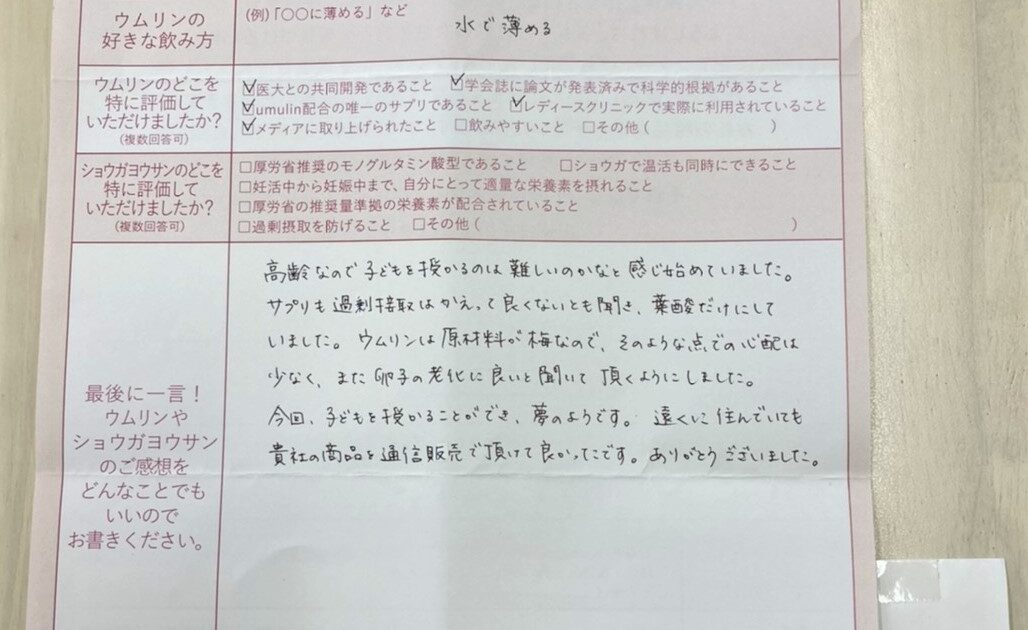 ウムリンの
好きな飲み方
(例)「〇〇に薄める」など
水で薄める
ウムリンのどこを
特に評価して
いただけましたか?
(複数回答可)
☑医大との共同開発であること ☑学会誌に論文が発表済みで科学的根拠があること
☑umulin配合の唯一のサプリであること ☑レディースクリニックで実際に利用されていること
☑メディアに取り上げられたこと □飲みやすいこと □その他( )
ショウガヨウサンのどこを
特に評価して
いただけましたか?
(複数回答可)
□厚労省推奨のモノグルタミン酸型であること □ショウガで温活も同時にできること
□妊活中から妊娠中まで、自分にとって適量な栄養素を摂れること
□厚労省の推奨量準拠の栄養素が配合されていること
□過剰摂取を防げること □その他( )
最後に一言!
ウムリンや
ショウガヨウサン
のご感想を
どんなことでも
いいので
お書きください。
高齢なので子どもを授かるのは難しいのかなと感じ始めていました。
サプリも過剰摂取はかえって良くないとも聞き、葉酸だけにして
いました。ウムリンは原材料が梅なので、そのような点での心配は
少なく、また卵子の老化に良いと聞いて頂くようにしました。
今回、子どもを授かることができ、夢のようです。遠くに住んでいても
貴社の商品を通信販売で頂けて良かったです。ありがとうございました。